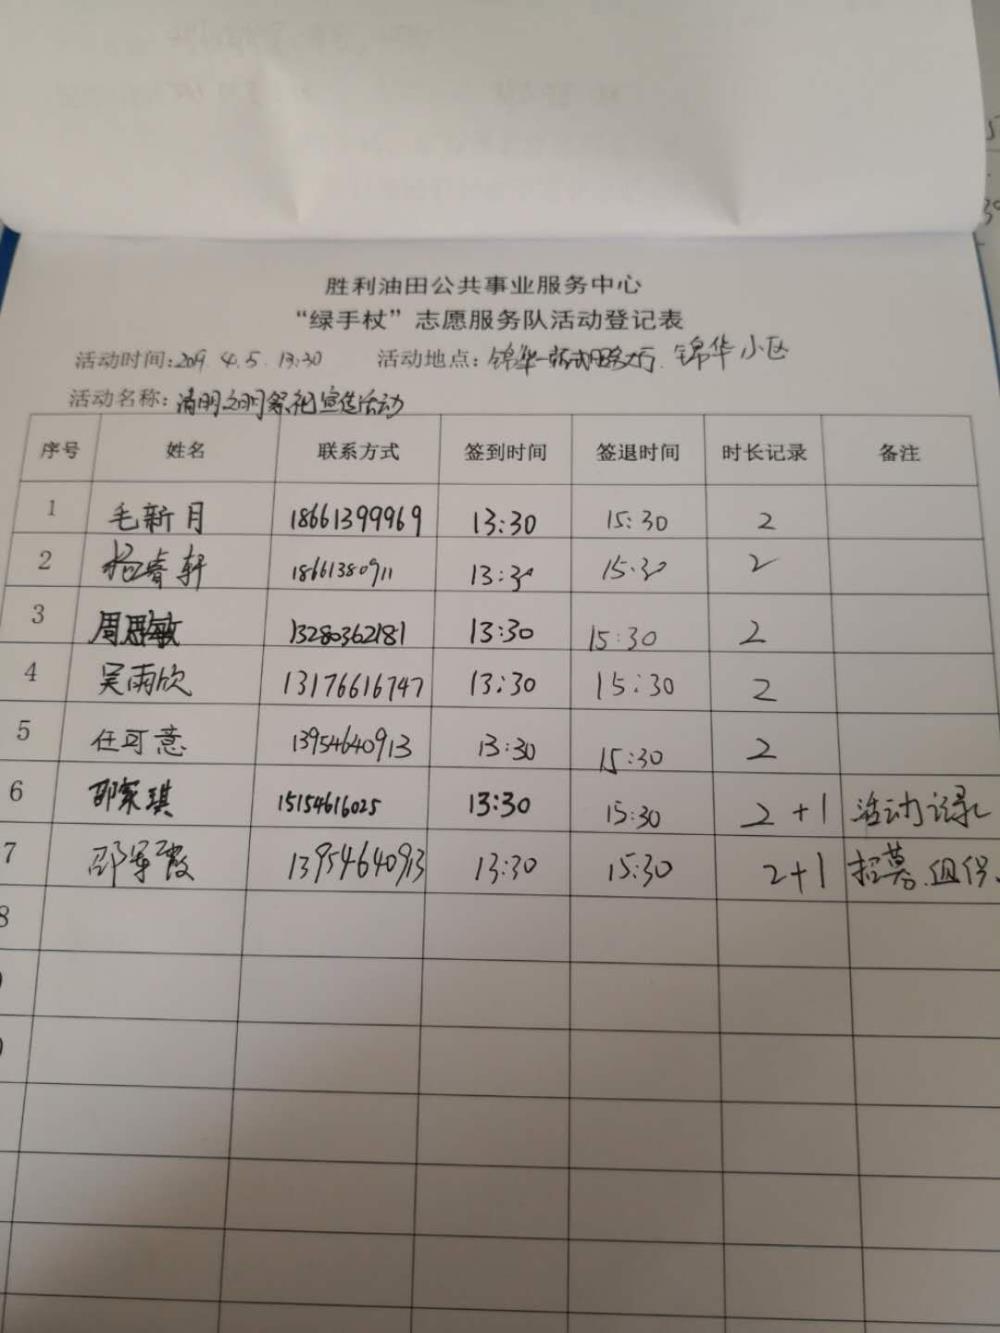 胜利油田公共事业服务中心
“绿手杖”志愿服务队活动登记表
活动时间:2019.4.5.13:30 活动地点:锦华一站式服务大厅.锦华小区
活动名称:清明文明祭祀宣传活动
序号 姓名 联系方式 签到时间 签退时间 时长记录 备注
1 毛新月 18661399969 13:30 15:30 2
2 杨睿轩 18661380911 13:30 15:30 2
3 周思敏 13280362181 13:30 15:30 2
4 吴雨欣 13176616747 13:30 15:30 2
5 任可意 13954640913 13:30 15:30 2
6 邵家琪 15154616025 13:30 15:30 2+1 活动记录
7 邵军霞 13954640913 13:30 15:30 2+1 招募.组织.
8